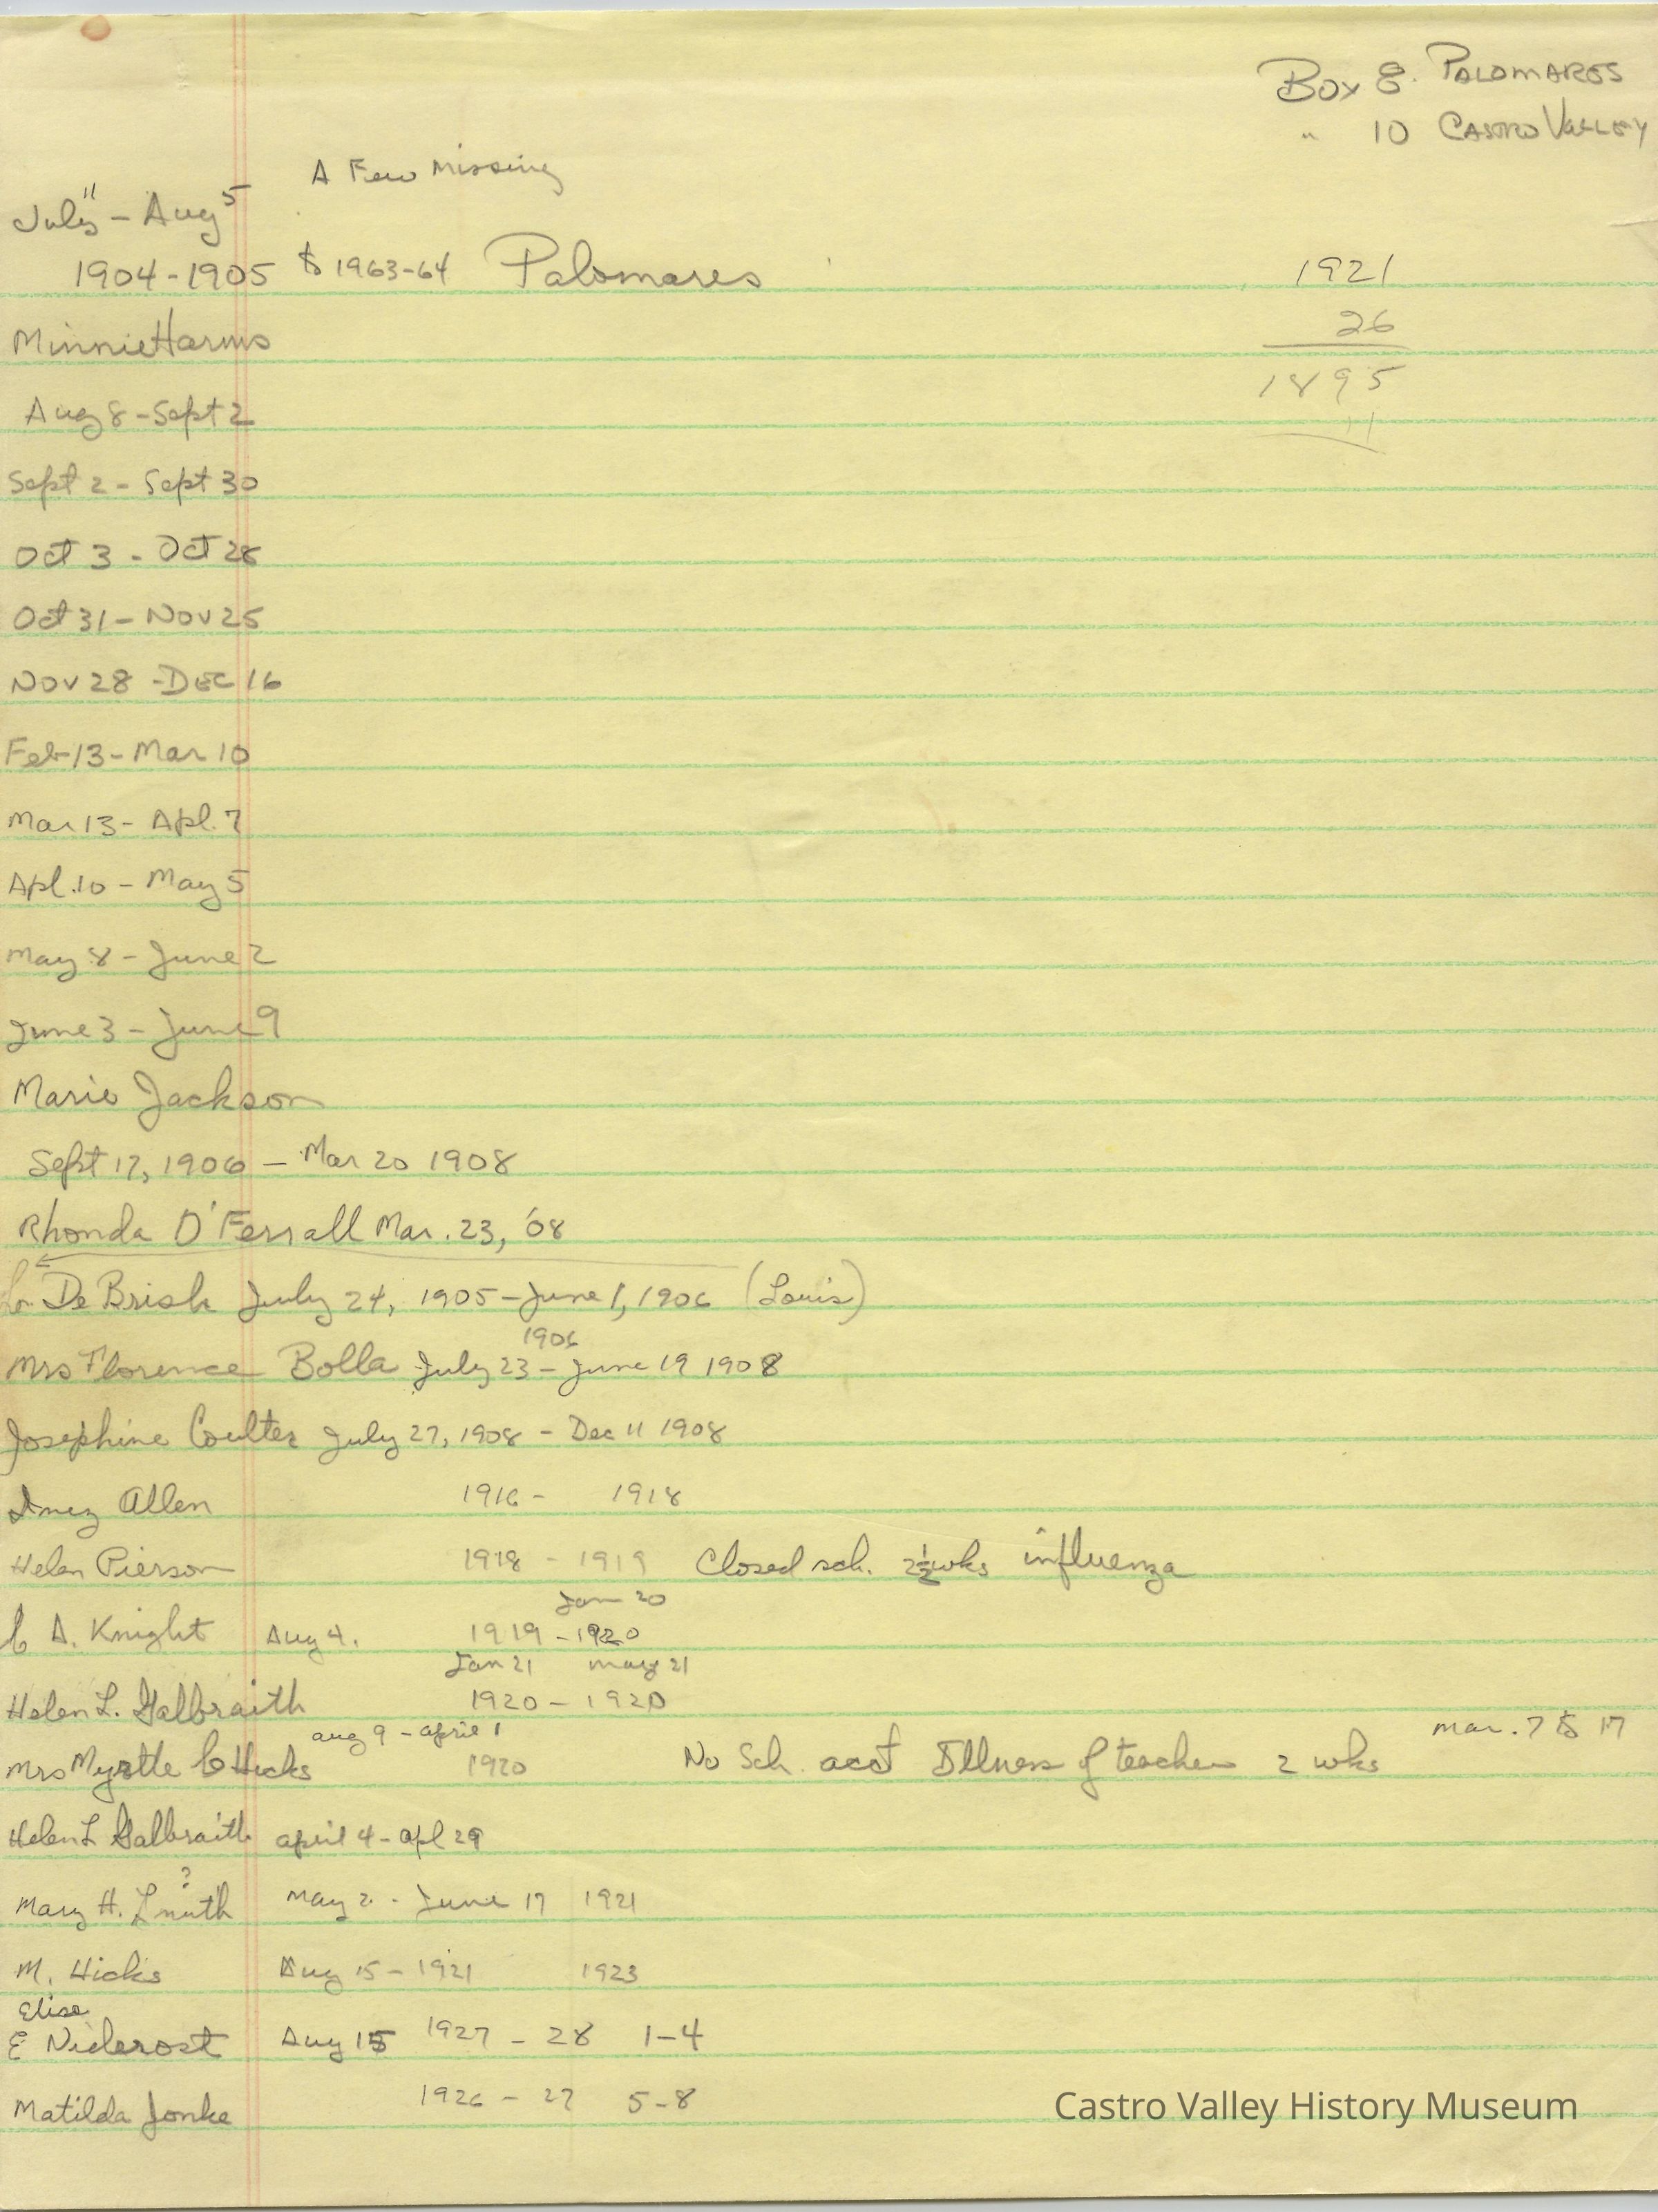 Box 8. Palomares
" 10 Castro Valley
A Few Missing
July 11 - Aug 5
1904-1905 to 1963-64 Palomares
1921
26
1895
11
Minnie Harms
Aug 8 - Sept 2
Sept 2 - Sept 30
Oct 3 - Oct 28
Oct 31 - Nov 25
Nov 28 - Dec 16
Feb 13 - Mar 10
Mar 13 - Apl. 7
Apl. 10 - May 5
May 8 - June 2
June 3 - June 9
Marie Jackson
Sept 17, 1906 - Mar 20 1908
Rhonda O'Ferrall Mar. 23, '08
De Brish July 24, 1905 - June 1, 1906 (Louis)
1906
Mrs Florence Bolla July 23 - June 19 1908
Josephine Coulter July 27, 1908 - Dec 11 1908
Inez Allen 1916 - 1918
Helen Pierson 1918 - 1919 Closed sch. 2½ wks influenza
Jan 20
C A. Knight Aug 4. 1919 - 1920
Jan 21 May 21
Helen L. Galbraith 1920 - 1920
Aug 9 - April 1 Mar. 7 to 17
Mrs Myrtle C Hicks 1920 No Sch. acct Illness of teacher 2 wks
Helen L Galbraith April 4 - Apl 29
?
Mary H. May 2 - June 17 1921
M. Hicks Aug 15 - 1921 1923
Elise
E Niderost Aug 15 1927 - 28 1-4
Matilda Jonke 1926 - 27 5-8
Castro Valley History Museum